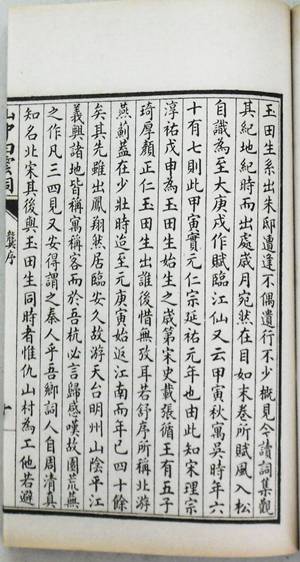 玉田生系出朱邸遭逢不偶遺行不少概見今讀詞集觀
其紀地紀時而出處歲月宛然在目如末卷所賦風入松
自識為至大庚戌作賦臨江仙又云甲寅秋寓吳時年六
十有七則此甲寅實元仁宗延祐元年也由此知宋理宗
淳祐戊申為玉田生始生之歲第宋史載張循王有五子
琦厚顏正仁玉田生出誰後惜無攷耳若舒序所稱北游
燕薊蓋在少壯時造至元庚寅始返江南而年已四十餘
矣其先雖出鳳翔然居臨安久故游天台明州山陰平江
義興諸地皆稱寓稱客而於吾杭必言歸感嘆故園荒蕪
之作凡三四見又安得謂之秦人乎吾鄉詞人自周清真
知名北宋其後與玉田生同時者惟仇山村為工他若避
山中白雲詞
龔序